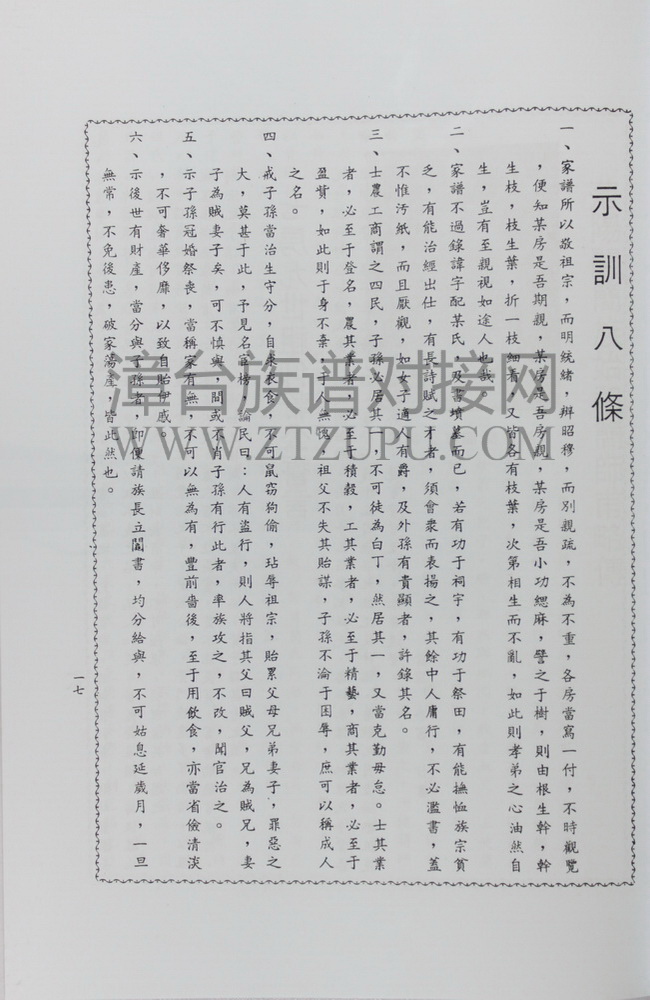 示訓八條
一、家譜所以敬祖宗，而明統緒，辨昭穆，而別親疏，不為不重，各房當寫一付，不時觀覽
，便知某房是吾期親，某房是吾房親，某房是吾小功緦麻，譬之于樹，則由根生幹，幹
生枝，枝生葉，折一枝細看，又皆各有枝葉，次第相生而不亂，如此則孝弟之心油然自
生，豈有至親視如途人也哉。
二、家譜不過錄諱字配某氏，及書墳墓而已，若有功于祠宇，有功于祭田，有能撫恤族宗貧
乏，有能治經出仕，有長詩賦之才者，須會衆而表揚之，其餘中人庸行，不必濫書，蓋
不惟污紙，而且厭觀，如女子適人有爵，及外孫有貴顯者，許錄其名。
三、士農工商謂之四民，子孫必居其一，不可徒為白丁，然居其一，又當克勤毋怠。士其業
者，必至于登名，農其業者，必至于積穀，工其業者，必至于精藝，商其業者，必至于
盈貲，如此則于身不棄，于人無愧，祖父不失其貽謀，子孫不淪于困辱，庶可以稱成人
之名。
四、戒子孫當治生守分，自衆衣食，不可鼠窃狗偷，玷辱祖宗，貽累父母兄弟妻子，罪惡之
大，莫甚于此，予見名宦榜，諭民曰：人有盜行，則人將指其父曰賊父，兄為賊兄，妻
子為賊妻子矣，可不慎與，間或不肖子孫有行此者，率族攻之，不改，聞官治之。
五、示子孫冠婚祭喪，當稱家有無，不可以無為有，豐前嗇後，至于用飲食，亦當省儉清淡
，不可奢華侈靡，以致自貽伊慼。
六、示後世有財產，當分與子孫者，即便請族長立鬮書，均分給與，不可姑息延歲月，一旦
無常，不免後患，破家蕩產，皆此然也。
一七
漳台族谱对接网
WWW.ZTZUPU.COM